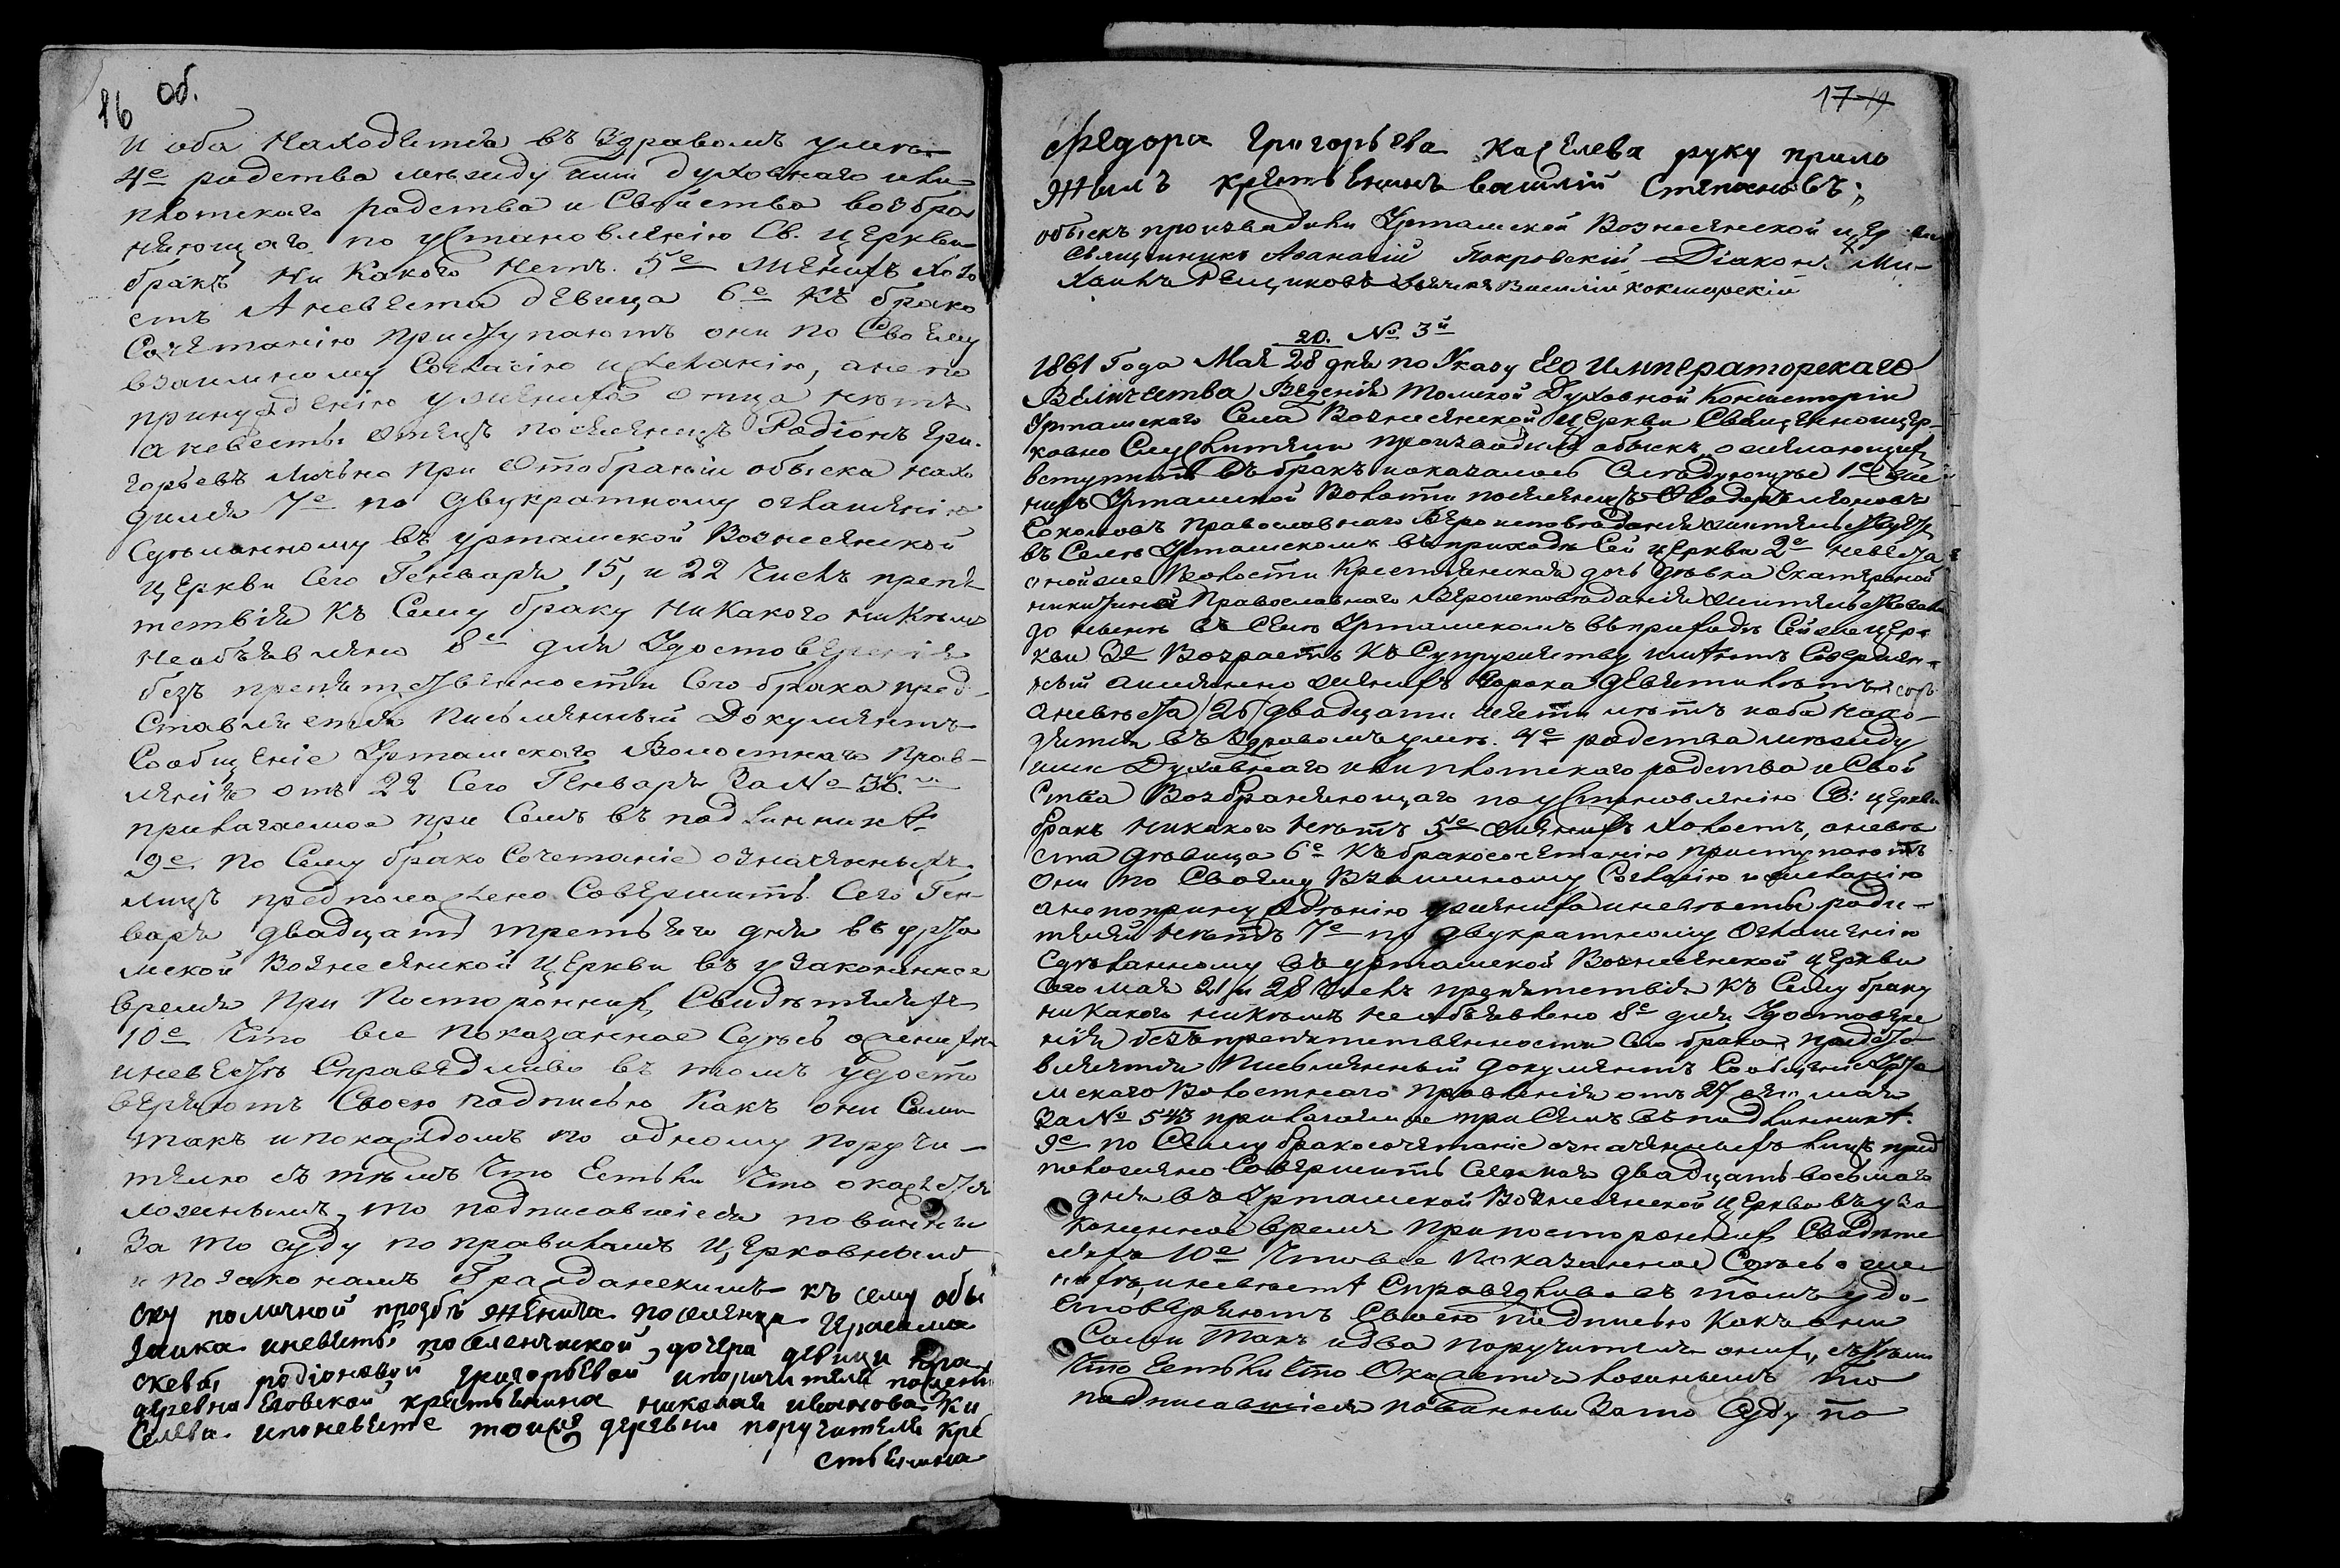 16 Об.
и оба находятся въ здравомъ уме
4е родства между ими духовнаго или
плотскаго родства и свойства возбра
няющаго по установленію Св. церкви
бракъ ни какого нетъ. 5е женихъ холо
стъ А невеста девица 6е къ брако
сочетанію приступаютъ они по своему
взаимному согласію и желанію, а не по
принужденію у жениха отца нетъ
а невесты отецъ поселенецъ Родіонъ Гри-
горьевъ лично при отобраніи обыска нахо
дился 7е по двукратному оглашенію
сделанному въ Уртамской Вознесенской
церкви сего Генваря 15, и 22 числъ препя
тствія къ сему браку никакого никемъ
необъявлено 8е для удостоверенія
безъ препятственности сего брака пред-
ставляется письменный документъ
Сообщеніе Уртамскаго Волостнаго Прав-
ленія отъ 22 сего Генваря за № 36.
прилагаемое при семъ въ подлиннике
9е По сему брако сочетаніе означенныхъ
лицъ предположено совершить сего Ген-
варя двадцать третьяго дня въ Урта
мской Вознесенской церкви въ узаконенное
время при постороннихъ свидетеляхъ
10е Что все показанное здесь о женихе
и невесте справедливо въ томъ удосто
веряютъ своею подписью какъ они сами
такъ и по каждомъ по одному поручи-
телю съ темъ что естьли что окажется
ложнымъ, то подписавшіеся повинны
за то суду по правиламъ церковнымъ
и по законамъ Гражданскимъ къ сему обы
ску по личной прозбе жениха поселенца
и невесты поселенческой дочери девицы Пра
сковьи Родіоновой Григорьевой и поручителя
деревни Еловской крестьянина Николая Иванова Ки
селева и по невесте той же деревни поручителя кре
стьянина
17 19
Федора Григорьева Киселева руку прило
жилъ крестьянинъ Василій Степановъ;
обыскъ производили Уртамской Вознесенской церкви
Священникъ Афанасій Покровскій Діаконъ Ми-
хаилъ Василій Кокшарскій
20. № 3й
1861 Года Мая 28 дня по Указу Его Императорскаго
Величества Веденія Томской Духовной Консисторіи
Уртамскаго Села Вознесенской церкви священноцер-
ковно служители производили обыскъ о желающихъ
вступить въ бракъ и оказалось следующее 1е же
нихъ Уртамской Волости поселенецъ
Соколовъ православнаго вероисповеданія жительствуетъ
въ селе Уртамскомъ въ приходе сей церкви 2е невеста
оной же Волости крестьянская дочь девка Екатерина
Никитина Православнаго вероисповеданія жительствовала
до ныне въ селе Уртамскомъ въ приходе сей же цер-
кви 3е Возрастъ къ супружеству имеютъ совершен-
ный а именно женихъ сорока девяти летъ
а невеста /26/ двадцати шести летъ и оба нахо-
дятся въ здравомъ уме. 4е родства между
ими духовнаго или плотскаго родства и свой
ства возбраняющаго по установленію Св: церкви
бракъ никакого нетъ 5е женихъ холостъ, а неве
ста девица 6е къ бракосочетанію приступаютъ
они по своему взаимному согласію и желанію
а не по принужденію у жениха и невесты роди-
телей нетъ 7е по двукратному оглашенію
сделанному въ Уртамской Вознесенской церкви
сего мая 21 и 28 числъ препятствія къ сему браку
никакого никемъ не объявлено 8е для удостовере
нія безъ препятственности сего брака предста
вляется письменный документъ Сообщеніе Урта
мскаго Волостнаго Правленія отъ 27 сего мая
за № 543 прилагаемое при семъ въ подлиннике.
9е по сему бракосочетаніе означенныхъ лицъ пред
положено совершить сего мая двадцать восьмаго
дня въ Уртамской Вознесенской церкви въ уза
коненное время при постороннихъ свидете
ляхъ 10е что все показанное здесь о же
нихе, и невесте справедливо въ томъ удо-
стоверяютъ своею подписью какъ они
сами такъ и два поручителя оныхъ, съ темъ
что естьли что окажется ложнымъ то
подписавшіеся повинны за то суду по